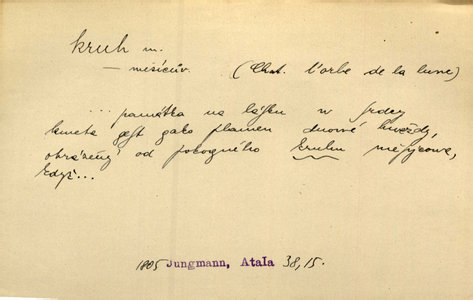 kruh m.
— měsícův. (Chat. l'orbe de la lune)
... památka na lásku w srdcy
kmeta gest gako plamen dnowé hwězdy,
obrážený od pokogného kruhu měsycowa,
když...
1805 Jungmann, Atala 38,15.